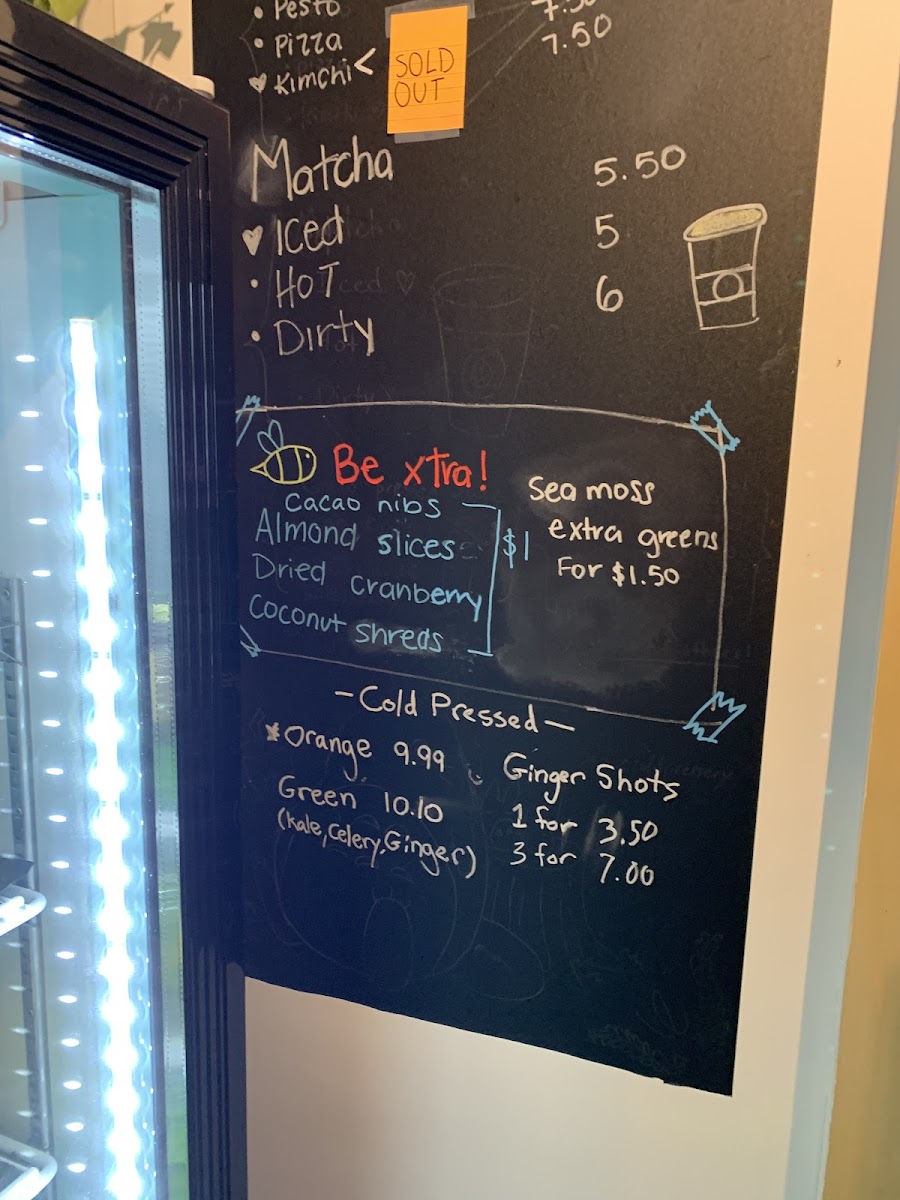 • Pesto 7.50
• Pizza 7.50
♥ Kimchi < SOLD OUT
Matcha
♥ Iced 5.50
• HOT 5
• Dirty 6
Be xtra!
Cacao nibs
Almond slices
Dried cranberry
Coconut shreds
$1
Sea moss
extra greens
For $1.50
- Cold Pressed -
*Orange 9.99
Green 10.10
(Kale, Celery, Ginger)
Ginger Shots
1 for 3.50
3 for 7.00